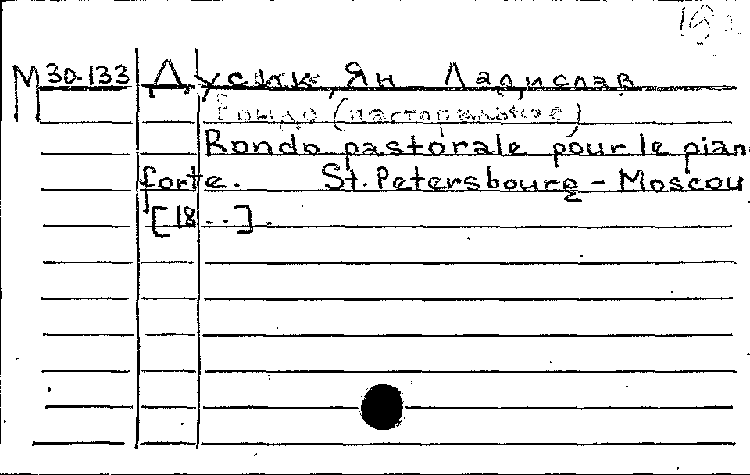 М 30-133 Дусик, Ян Ладислав
Рондо (пасторальное)
Rondo pastorale pour le pian
forte. St. Petersbourg - Moscou
[18 . . ].